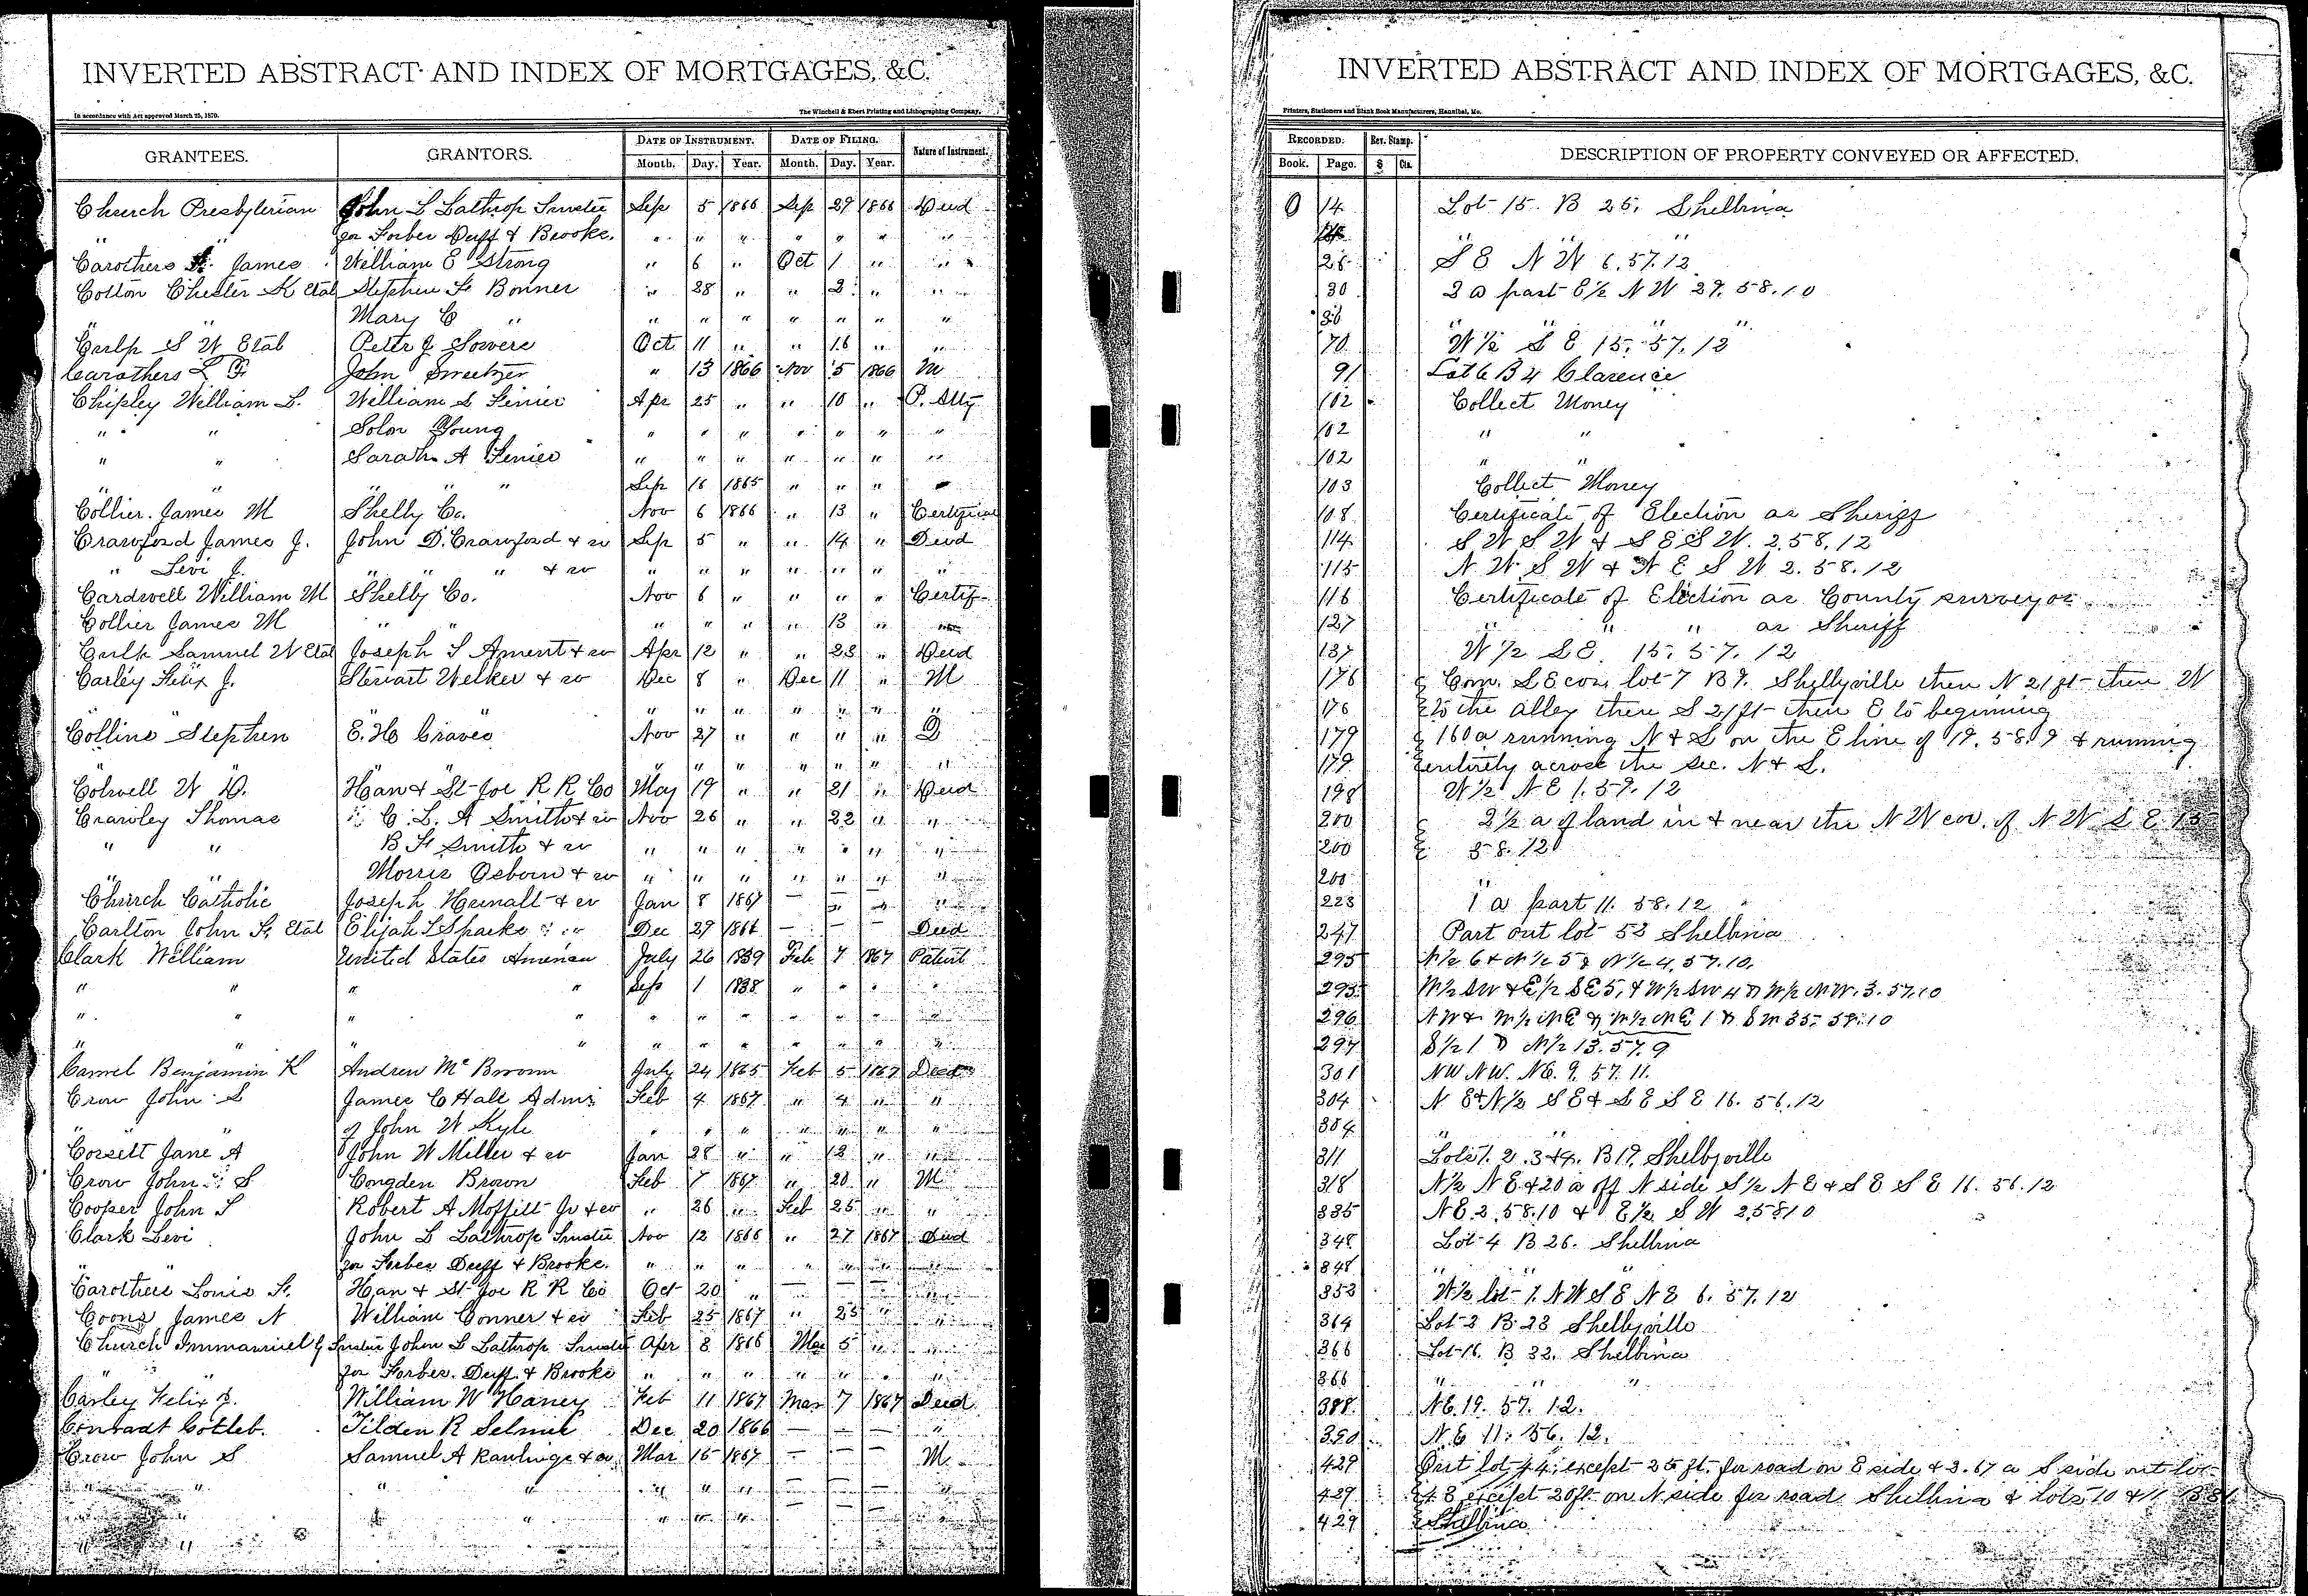 INVERTED ABSTRACT AND INDEX OF MORTGAGES, &C.
In accordance with Act approved March 25, 1870.
The Winchell & Ebert Printing and Lithographing Company,
GRANTEES. GRANTORS. DATE OF INSTRUMENT. DATE OF FILING. Nature of Instrument.
Month. Day. Year. Month. Day. Year.
Church Presbyterian John L Lathrop Trustee Sep 5 1866 Sep 29 1866 Deed
" " for Forbes Duff & Brooke. " " " " " " "
Carothers James William E Strong " 6 " Oct 1 " "
Cotton Chester K Etal Stephen F Bonner " 28 " " 2 " "
" " Mary C " " " " " " " "
Culp S W Etal Peter J Sowers Oct 11 " " 16 " "
Carothers L F John Sweetzer " 13 1866 Nov 5 1866 M
Chipley William L. William S Ferrier Apr 25 " " 10 " P. Atty
" " Solon Young " " " " " " "
" " Sarah A Ferrier " " " " " " "
" " " " " Sep 16 1865 " " "
Collier James M Shelby Co. Nov 6 1866 " 13 " Certificate
Crawford James J. John D. Crawford & w Sep 5 " " 14 " Deed
" Levi J. " " " & w " " " " " " "
Cardwell William M Shelby Co. Nov 6 " " " " Certif
Collier James M " " " " " " 13 "
Culp Samuel W Etal Joseph S Ament & w Apr 12 " " 23 " Deed
Carley Felix J. Steriart Welker & w Dec 8 " Dec 11 " M
" " " " " " " " " "
Collins Stephen E. H Graves Nov 27 " " " " D
" " " " " " " "
Colwell W D. Han & St Joe R R Co May 19 " " 21 " Deed
Crawley Thomas C. L. A Smith & w Nov 26 " " 22 " "
" " B F Smith & w " " " " " " "
" " Morris Osborn & w " " " " " " "
Church Catholic Joseph Hunalt & w Jan 8 1867 — — — "
Carlton John F. Etal Elijah L Sparks " " Dec 29 1866 — — — Deed
Clark William United States America July 26 1839 Feb 7 1867 Patent
" " " " Sep 1 1838 " " " "
" " " " " " " " " " "
" " " " " " " " " " "
Camel Benjamin K Andrew Mc Broom July 24 1865 Feb 5 1867 Deed
Crow John S James C Hall Admr Feb 4 1867 " 4 " "
" " of John W Kyle " " " " " " "
Corsett Jane A John W Miller & w Jan 28 " " 12 " "
Crow John S Congden Brown Feb 7 1867 " 20 " M
Cooper John S Robert A Moffitt Jr & w " 26 " Feb 25 " "
Clark Levi John L Lathrop Trustee Nov 12 1866 " 27 1867 Deed
" " for Forbes Duff & Brooke. " " " " " " "
Carothers Louis F. Han & St Joe R R Co Oct 20 " — — — "
Coons James N William Conner & w Feb 25 1867 " 25 " "
Church Immanuel of Trustee John L Lathrop Trustee Apr 8 1866 Mar 5 " "
" " for Forbes. Duff. & Brooke " " " " " " "
Carley Felix J. William W Haney Feb 11 1867 Mar 7 1867 Deed
Conradt Gotleb. Tilden R Selmes Dec 20 1866 — — — "
Crow John S Samuel A Rawlings & w Mar 15 1867 — — — M
" " " " " " " — — — "
" " " " " " — — — "
" "
INVERTED ABSTRACT AND INDEX OF MORTGAGES, &C.
Printers, Stationers and Blank Book Manufacturers, Hannibal, Mo.
RECORDED. Rev. Stamp. DESCRIPTION OF PROPERTY CONVEYED OR AFFECTED.
Book. Page. $ Cts.
O 14 Lot 15. B 26. Shelbina
" " "
26 S E N W 6.57.12
30 2 a part E½ N W 29. 58.10
30 " " "
70 W ½ S E 15. 57. 12
91 Lot 6 B 4 Clarence
102 Collect Money
102 " "
102 " "
103 Collect Money
108 Certificate of Election as Sheriff
114 S W S W & S E S W. 2.58.12
115 N. W. S W & N E S W 2. 58. 12
116 Certificate of Election as County surveyor
127 " " " as Sheriff
137 W ½ S E. 15. 57. 12
176 Com. S E cor. lot 7 B 9. Shelbyville then N 21 ft then W
176 to the alley then S 21 ft then E to beginning
179 160 a running N & S on the E line of 19. 58. 9 & running
179 entirely across the sec. N & S.
198 W½ N E 1. 59. 12
200 2½ a of land in & near the N W cor. of N W S E 15
200 58. 12
200 "
223 1 a part 11. 58. 12
247 Part out lot 53 Shelbina
295 N½ 6 & N ½ 5 & N ½ 4. 57. 10.
295 W½ SW & E½ SE 5, & W½ SW 4 & W½ NW. 3. 57. 10
296 NW & W½ NE & W½ NE 1 & SW 35. 58. 10
297 S½ 1 & N½ 13. 57. 9
301 NW NW. NE. 9. 57. 11.
304 N E & N½ S E & S E S E 16. 56. 12
304 " "
311 Lots 1. 2. 3 & 4. B 19. Shelbyville
318 N½ N E. & 20 a off N side S ½ N E & S E S E 16. 56. 12
335 N E. 2. 58. 10 & E½ S W 2.58.10
348 Lot 4 B 26. Shelbina
348 " " "
353 W½ lot 1. N W S E N E 6. 57. 12
364 Lot 3 B 23 Shelbyville
366 Lot 16. B 32. Shelbina
366 " " "
388 N E. 19. 57. 12.
390 N E 11. 56. 12.
429 Out lot 44. except 25 ft. for road on E side & 3.67 a S side out lot
429 48 except 20 ft on N side for road Shelbina & lots 10 & 11 B 31
429 Shelbina